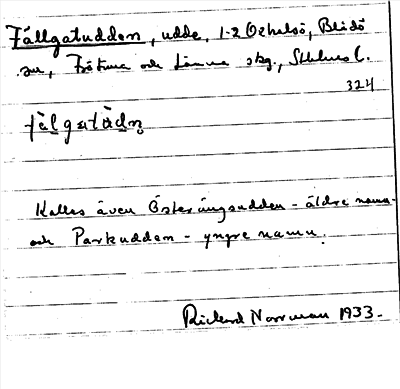 Fällgatudden, udde, 1-2 Oxhalsö, Blidö
sn, Frötuna och Länna skg, Sthlms l.
324
fä̀lgatùdn̥
Kallas även Österängsudden - äldre namn -
och Parkudden - yngre namn.
Rickard Norrman 1933.